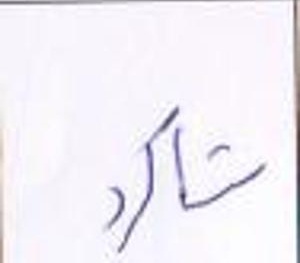 شاکرد